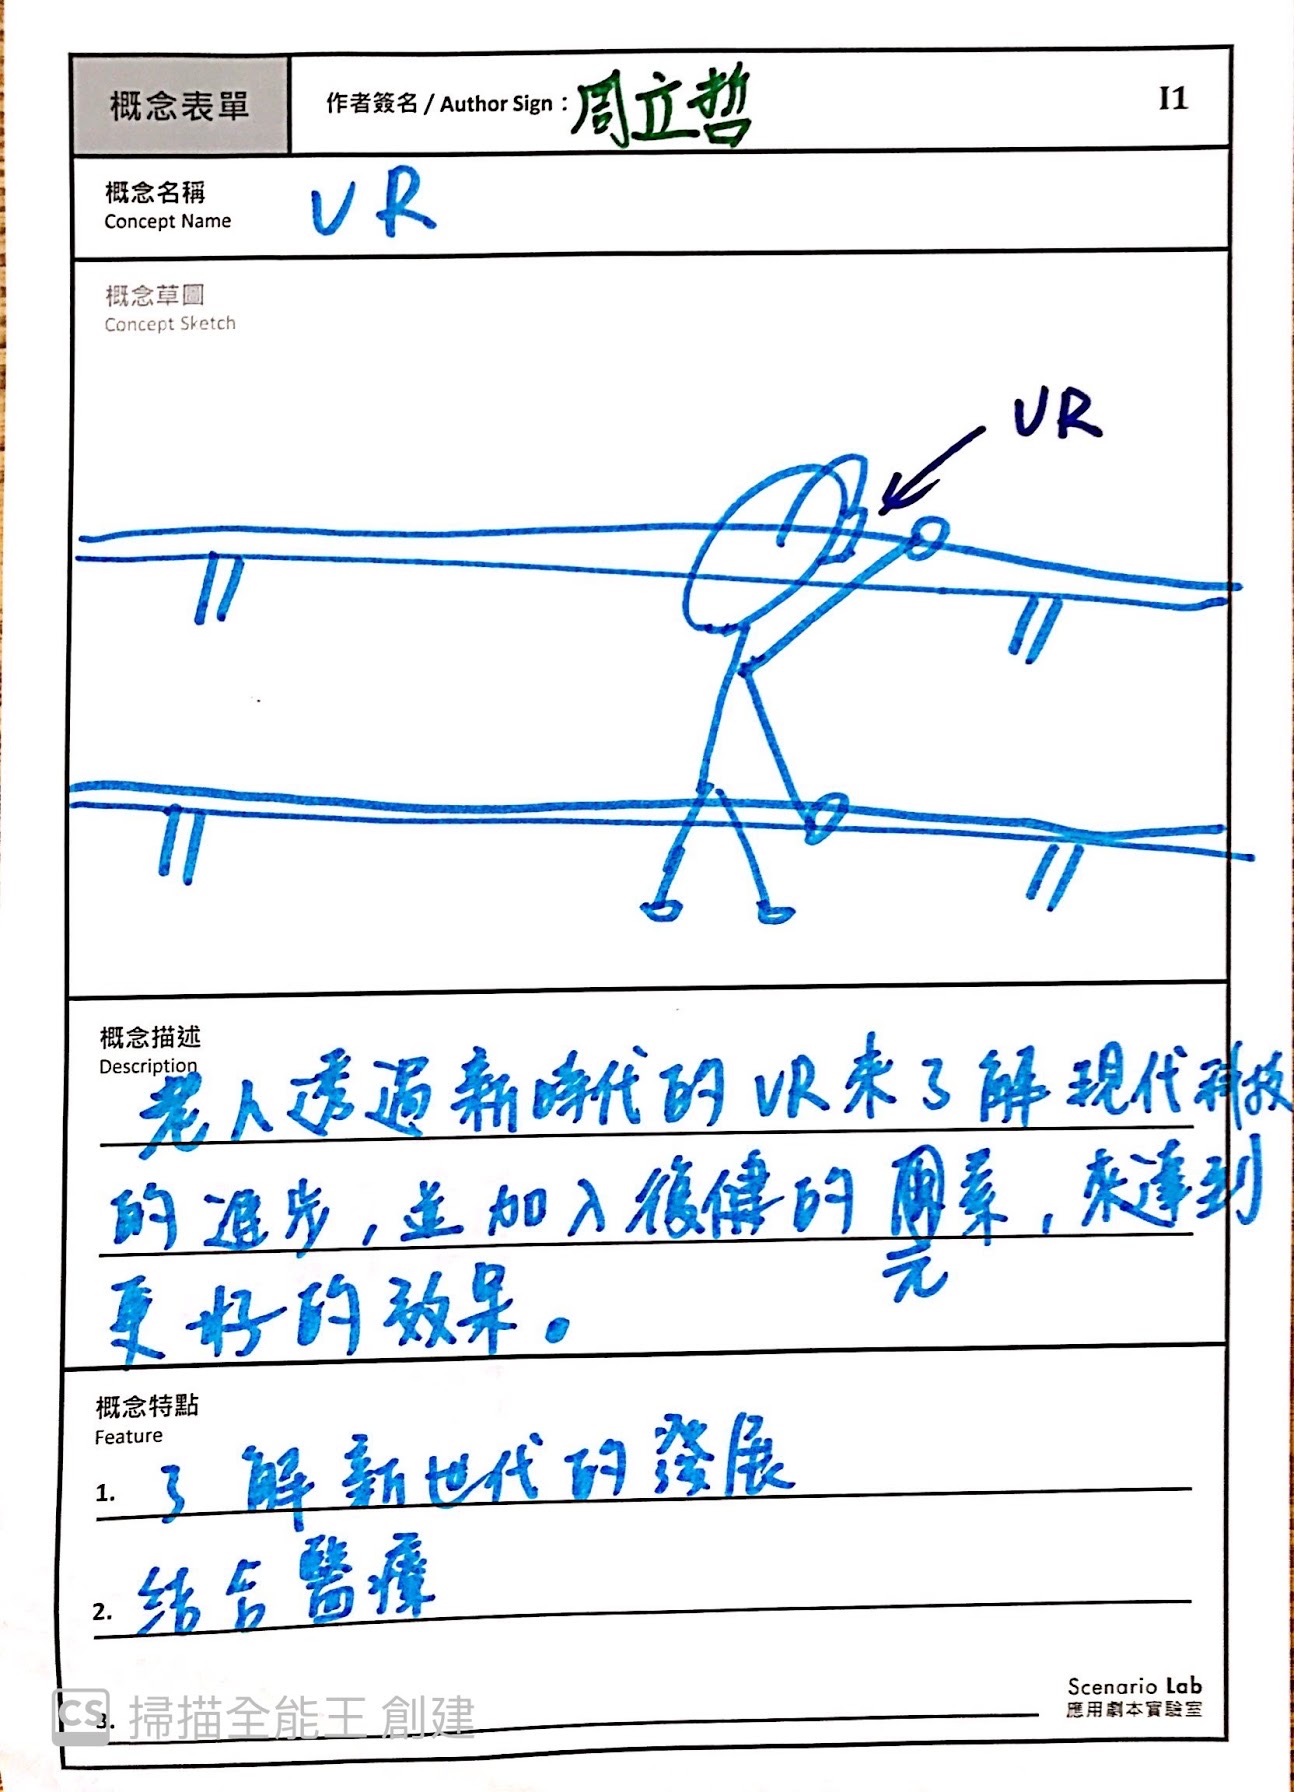 概念表單
作者簽名 / Author Sign：周立哲
I1
概念名稱
Concept Name
VR
概念草圖
Concept Sketch
VR
概念描述
Description
老人透過新時代的VR來了解現代科技
的進步，並加入復健的因素，來達到
元
更好的效果。
概念特點
Feature
1. 了解新世代的發展
2. 結合醫療
3.
Scenario Lab
應用劇本實驗室
CS 掃描全能王 創建